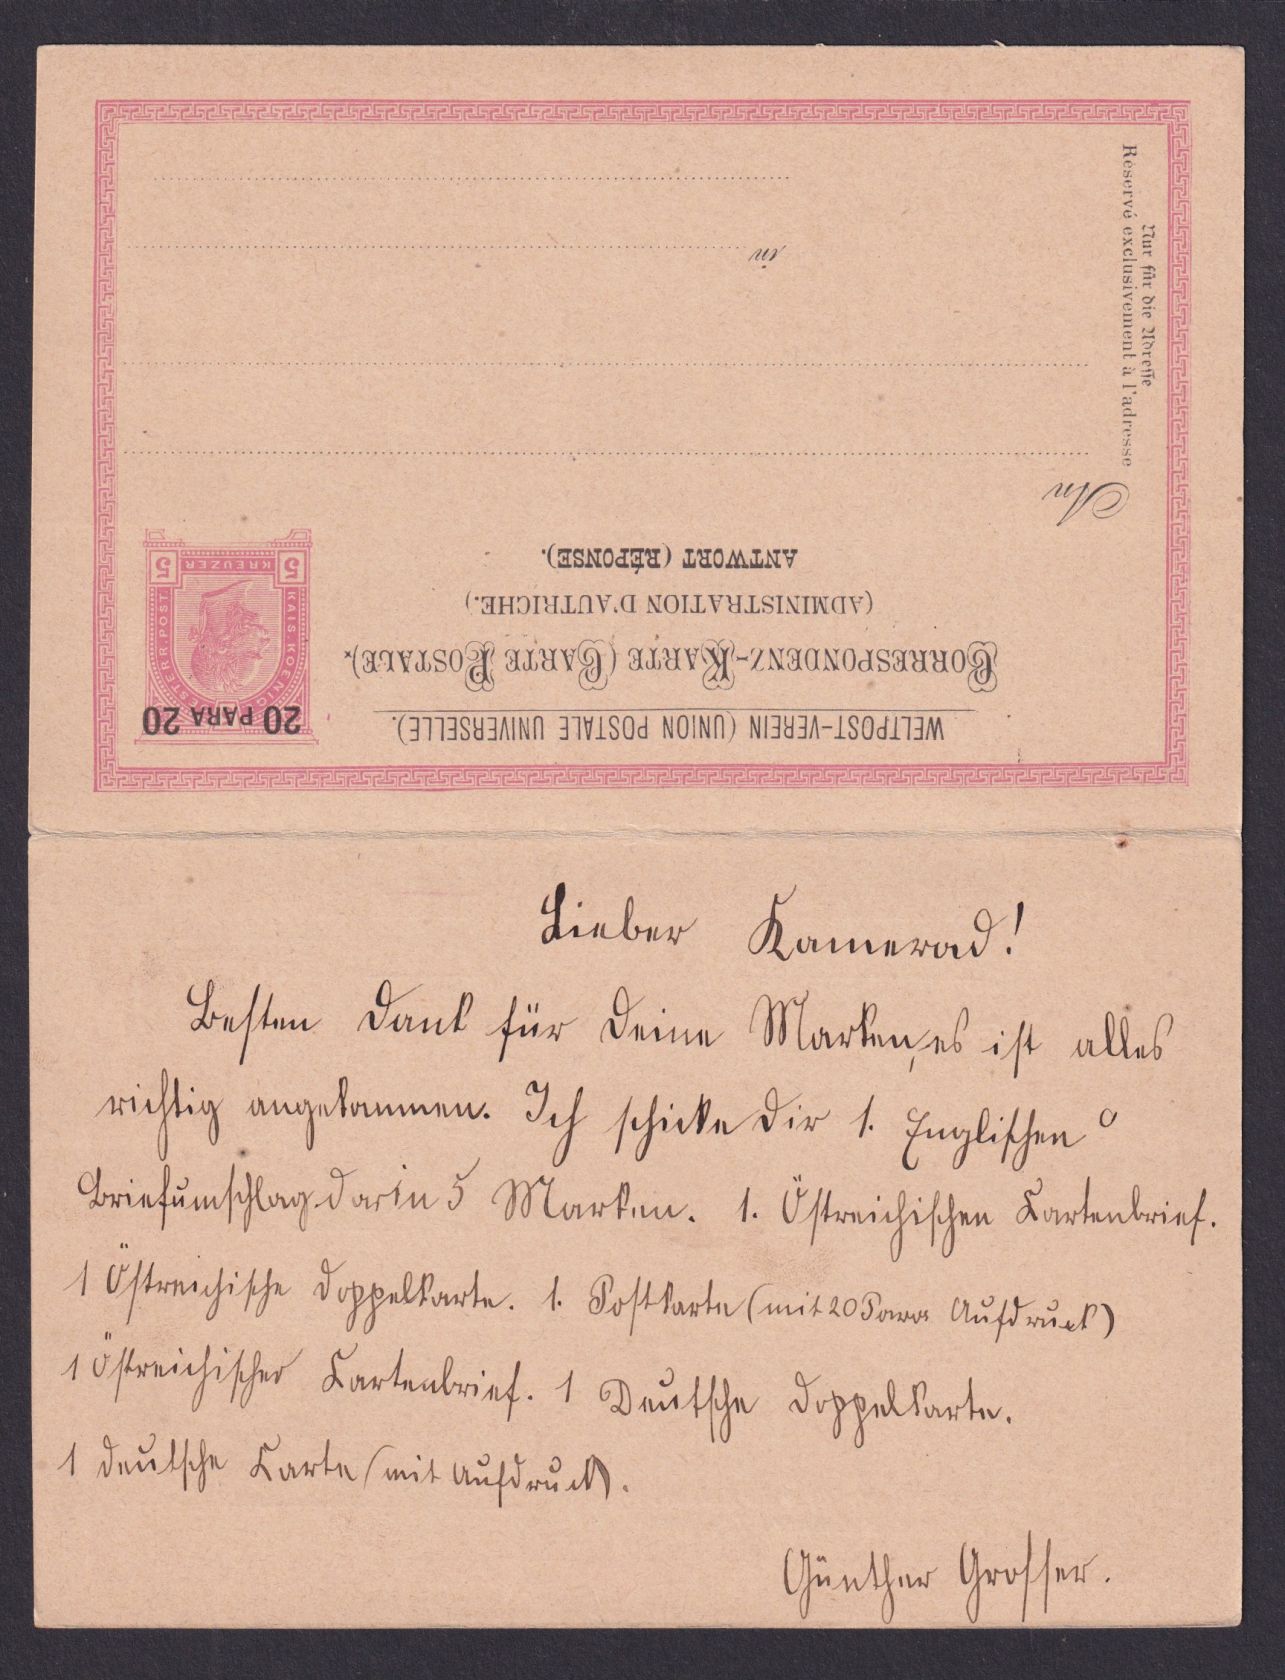 WELTPOST-VEREIN (UNION POSTALE UNIVERSELLE).
CORRESPONDENZ-KARTE (CARTE POSTALE).
(ADMINISTRATION D'AUTRICHE.)
ANTWORT (RÉPONSE).
20 PARA 20
KAIS. KOENIGL. OESTERR. POST.
5 KREUZER 5
An
in
Nur für die Adresse
Réservé exclusivement à l'adresse
Lieber Kamerad!
Besten Dank für Deine Marken, es ist alles
richtig angekommen. Ich schicke Dir 1. Englischen
Briefumschlag darin 5 Marken. 1. Östreichischen Kartenbrief.
1 Östreichische Doppelkarte. 1. Postkarte (mit 20 Para Aufdruck)
1 Östreichischer Kartenbrief. 1 Deutsche Doppelkarte.
1 deutsche Karte (mit Aufdruck).
Günther Grosser.